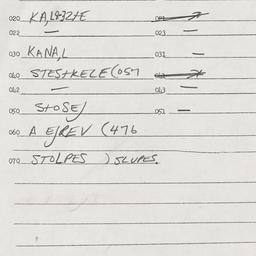 020 KA,L8321E 021
022 — 023 —
030 KANA,L 031 —
040 STESTKELE (057 041
042 — 043 —
050 STOSEJ 051 —
060 A EJREV (476
070 STOLPES ) SLUPES.